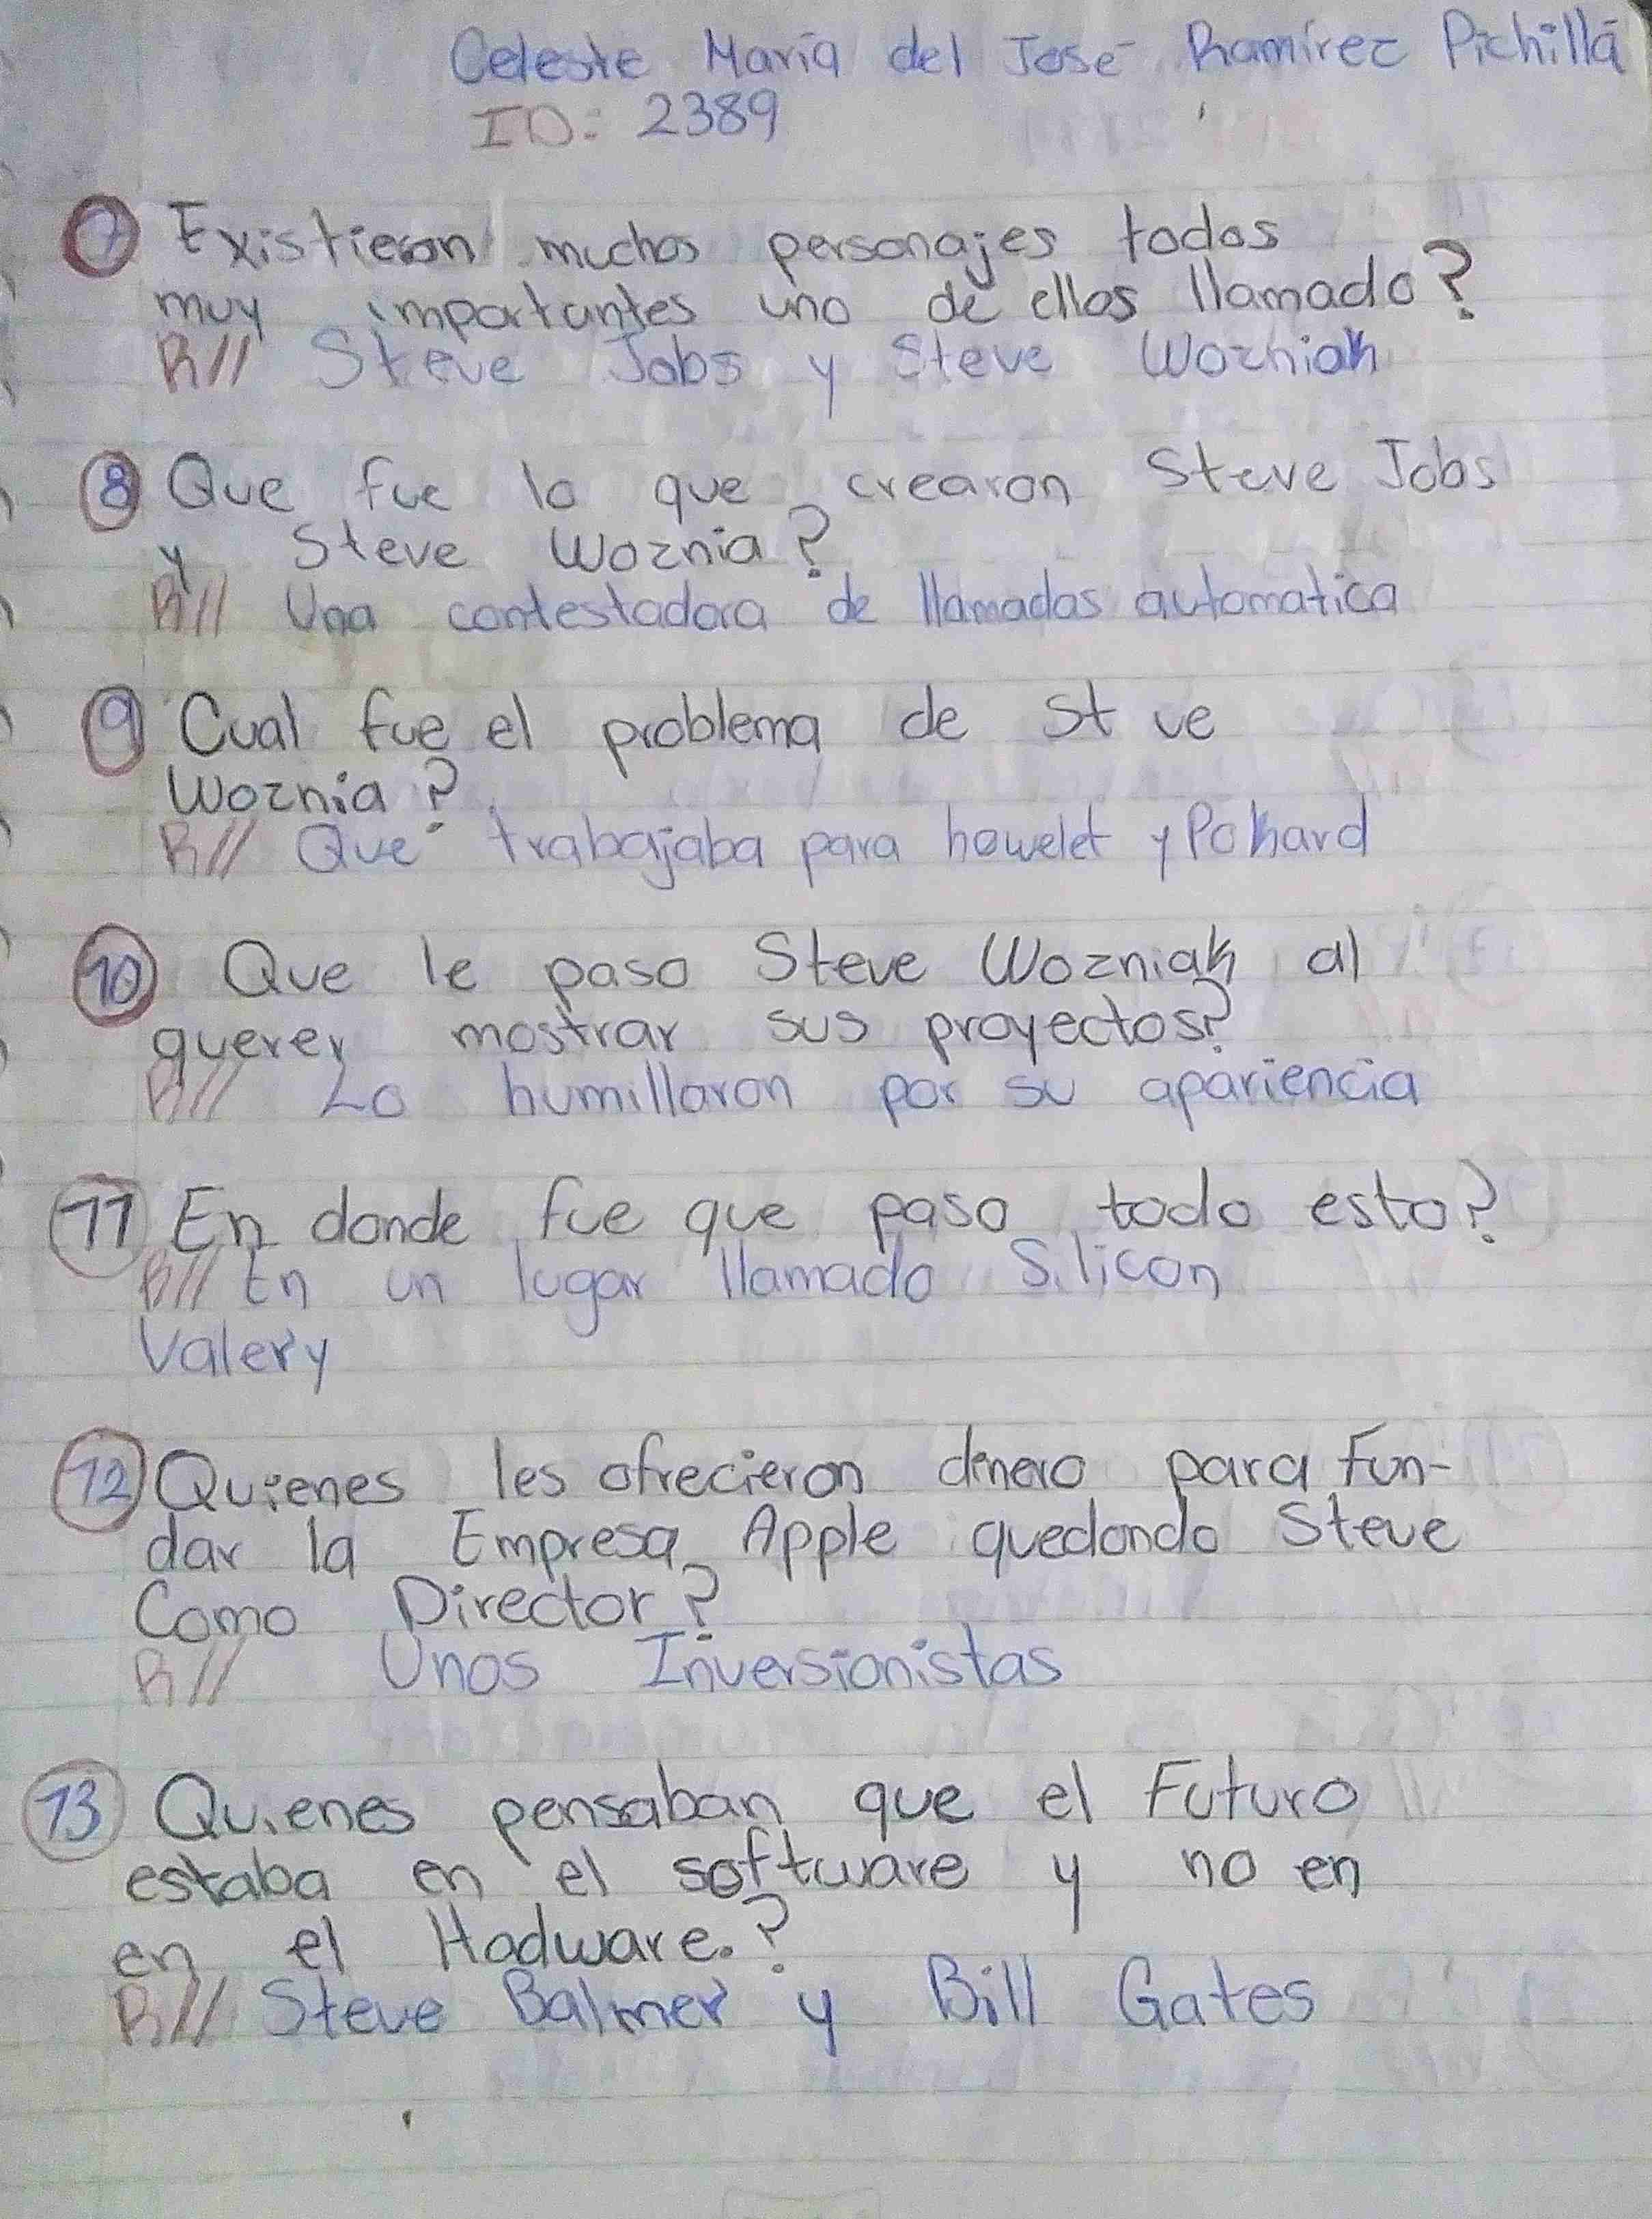 Celeste María del José Ramírez Pichillá
ID: 2389
7 Existieron muchos personajes todos
muy importantes uno de ellos llamado?
R// Steve Jobs y Steve Wozniak
8 Que fue lo que crearon Steve Jobs
y Steve Woznia?
R// Una contestadora de llamadas automatica
9 Cual fue el problema de St ve
Woznia?
R// Que trabajaba para howelet y Pokard
10 Que le paso Steve Wozniak al
querer mostrar sus proyectos?
R// Lo humillaron por su apariencia
11 En donde fue que paso todo esto?
R// En un lugar llamado Silicon
Valery
12 Quienes les ofrecieron dinero para Fun-
dar la Empresa Apple quedando Steve
Como Director?
R// Unos Inversionistas
13 Quienes pensaban que el Futuro
estaba en el software y no en
en el Hadware.?
R// Steve Balmer y Bill Gates